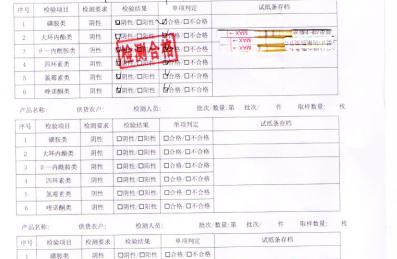 序号 检验项目 检测要求 检验结果 单项判定 试纸条存档
1 磺胺类 阴性 ☑阴性/□阳性 ☑合格/□不合格
2 大环内酯类 阴性 ☑阴性/□阳性 ☑合格/□不合格
3 β-内酰胺类 阴性 ☑阴性/□阳性 ☑合格/□不合格
4 四环素类 阴性 ☑阴性/□阳性 ☑合格/□不合格
5 氯霉素类 阴性 ☑阴性/□阳性 ☑合格/□不合格
6 喹诺酮类 阴性 ☑阴性/□阳性 ☑合格/□不合格
检测合格
MAX
MAX
产品名称: 供货农户: 检测人员: 批次/数量:第 批次/ 件 取样数量: 枚
序号 检验项目 检测要求 检验结果 单项判定 试纸条存档
1 磺胺类 阴性 □阴性/□阳性 □合格/□不合格
2 大环内酯类 阴性 □阴性/□阳性 □合格/□不合格
3 β-内酰胺类 阴性 □阴性/□阳性 □合格/□不合格
4 四环素类 阴性 □阴性/□阳性 □合格/□不合格
5 氯霉素类 阴性 □阴性/□阳性 □合格/□不合格
6 喹诺酮类 阴性 □阴性/□阳性 □合格/□不合格
产品名称: 供货农户: 检测人员: 批次/数量:第 批次/ 件 取样数量: 枚
序号 检验项目 检测要求 检验结果 单项判定 试纸条存档
1 磺胺类 阴性 □阴性/□阳性 □合格/□不合格